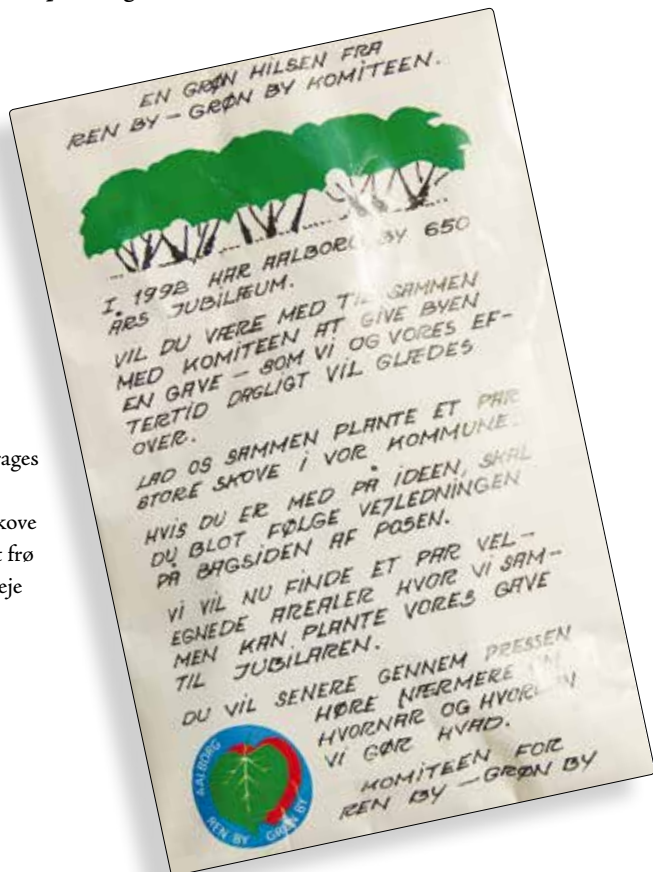 EN GRØN HILSEN FRA
REN BY – GRØN BY KOMITEEN.
I 1992 HAR AALBORG BY 650
ÅRS JUBILÆUM.
VIL DU VÆRE MED TIL SAMMEN
MED KOMITEEN AT GIVE BYEN
EN GAVE – SOM VI OG VORES EF–
TERTID DAGLIGT VIL GLÆDES
OVER.
LAD OS SAMMEN PLANTE ET PAR
STORE SKOVE I VOR KOMMUNE.
HVIS DU ER MED PÅ IDEEN, SKAL
DU BLOT FØLGE VEJLEDNINGEN
PÅ BAGSIDEN AF POSEN.
VI VIL NU FINDE ET PAR VEL–
EGNEDE AREALER HVOR VI SAM–
MEN KAN PLANTE VORES GAVE
TIL JUBILAREN.
DU VIL SENERE GENNEM PRESSEN
HØRE NÆRMERE OM
HVORNÅR OG HVORDAN
VI GØR HVAD.
KOMITEEN FOR
REN BY – GRØN BY
AALBORG
REN BY GRØN BY
rages
kove
frø
eje